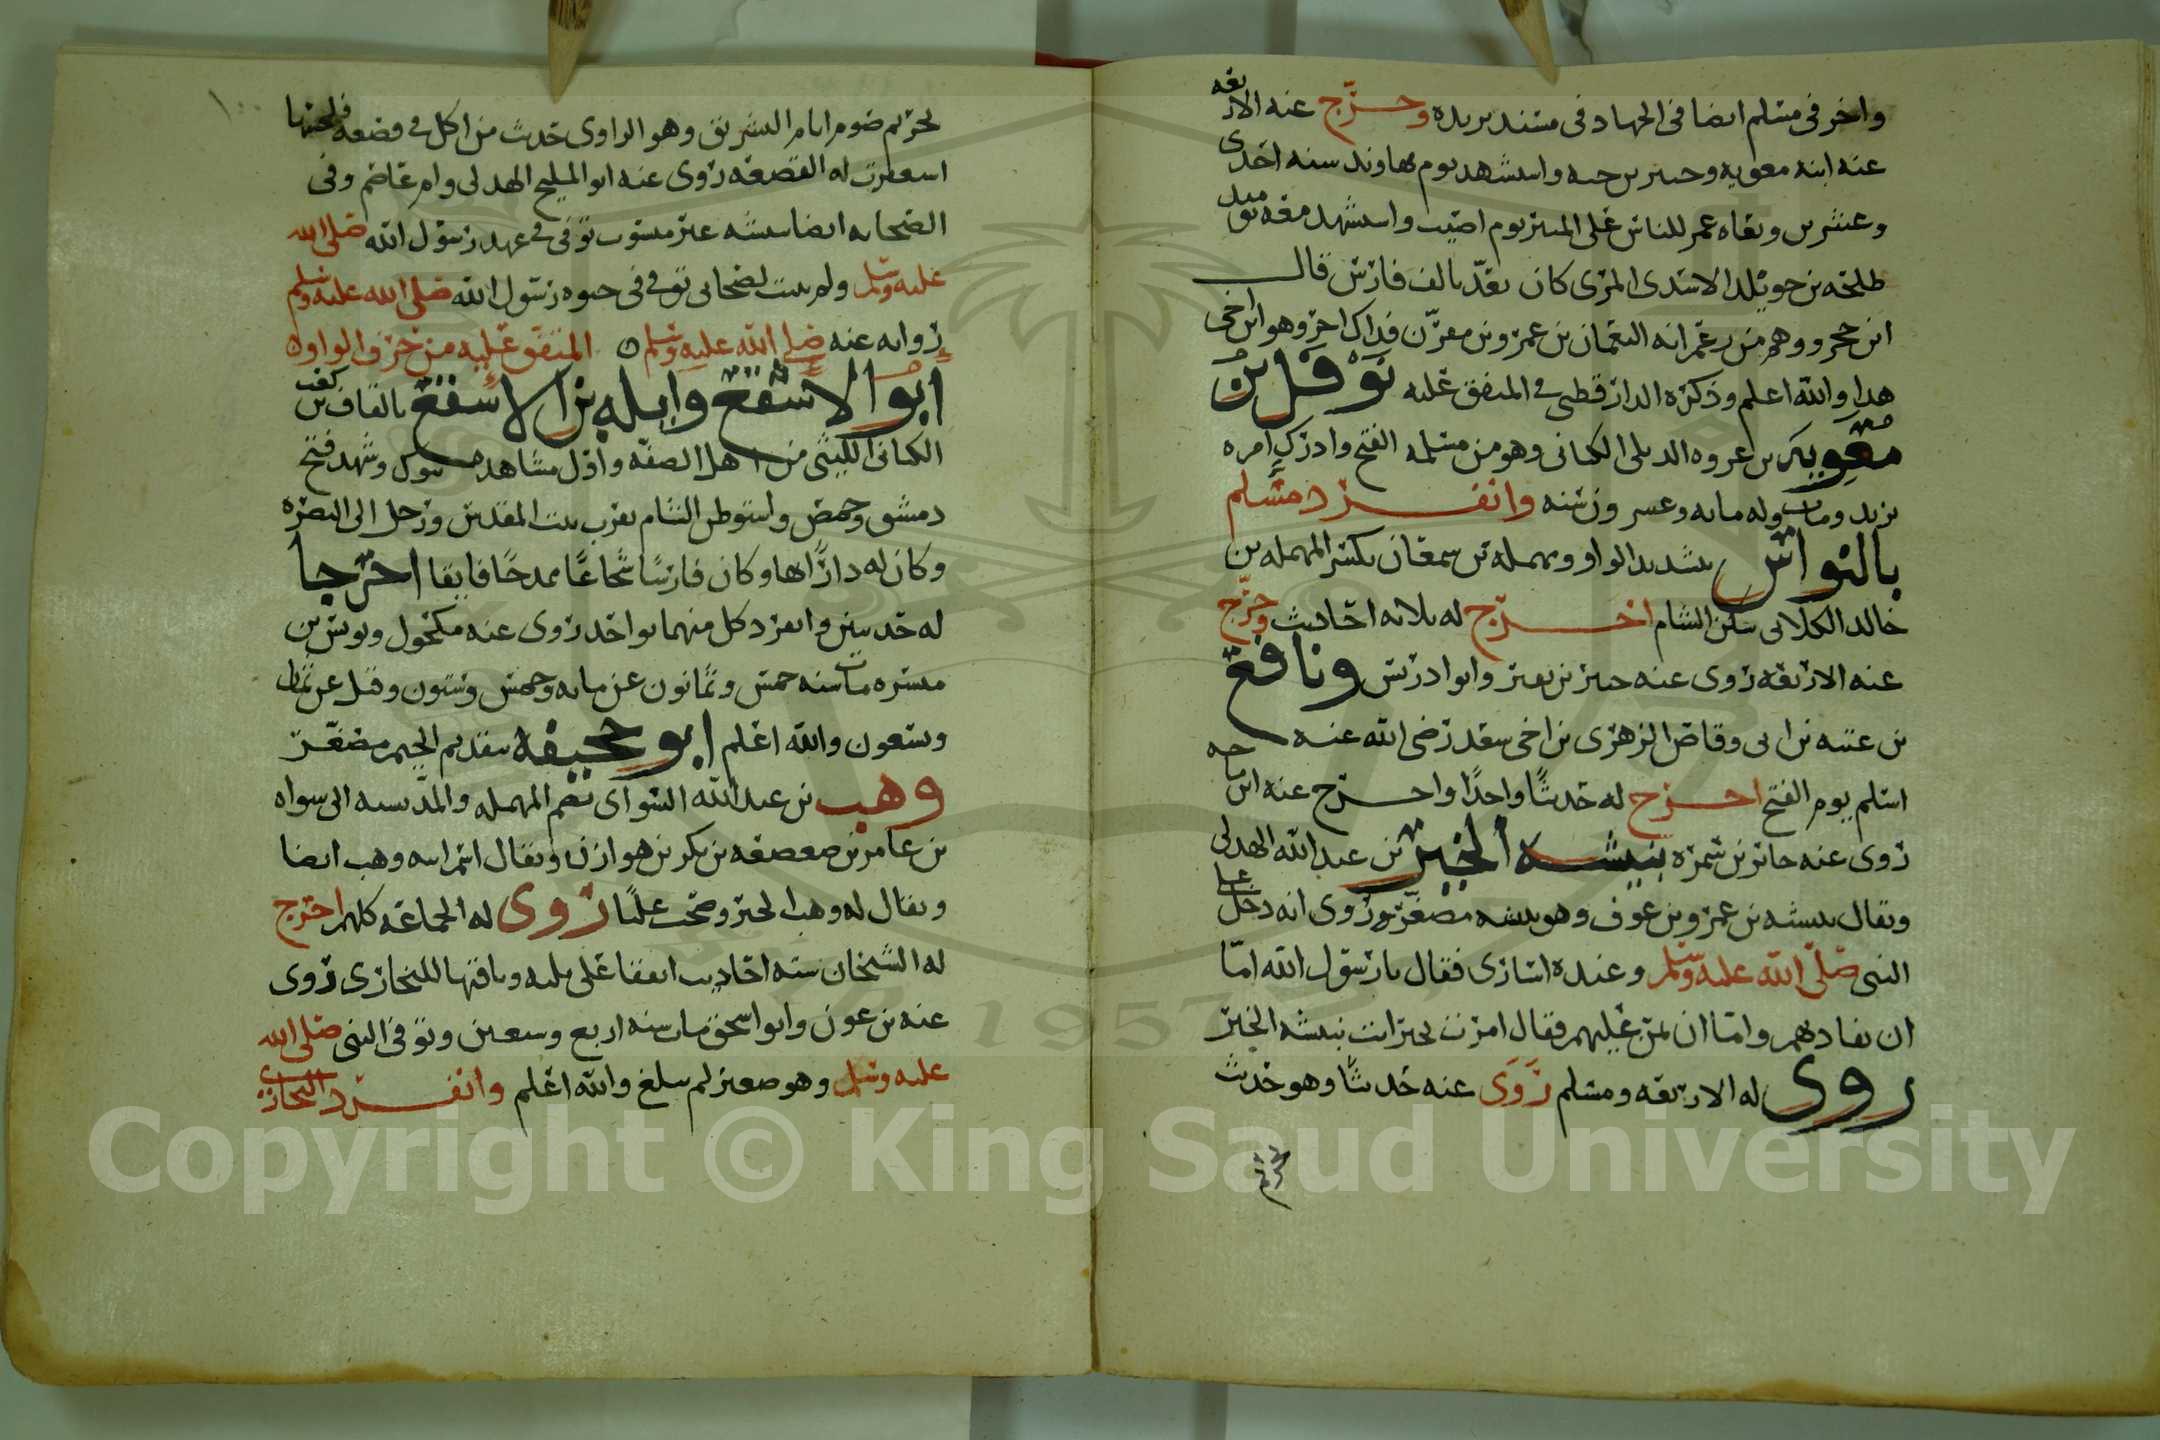 واخر في مسلم ايضا في الجهاد في مسند بريده وخرّج عنه الاربعه
عنه ابنه معويه وجبير بن حيه واستشهد يوم نهاوند سنه احدى
وعشرين ونعاه عمر للناس على المنبر يوم اصيب واستشهد معه يوميذ
طلحه بن خويلد الاسدي كان يعدّ بالف فارس قال
ابن حجر ووهم من زعم انه النعمان بن عمرو بن مقرّن فذاك اخر وهو ابن اخي
هذا والله اعلم وذكره الدارقطني في المتفق عليه نوفل بن
معويه بن عروه الديلي الكناني وهو من مسلمه الفتح وادرك امره
يزيد ومات وله مايه وعشرون سنه وانفرد مسلم
بالنواس بتشديد الواو ومهمله بن سمعان بكسر المهمله بن
خالد الكلابي سكن الشام اخرج له ثلاثه احاديث وخرّج
عنه الاربعه روى عنه جبير بن نفير وابو ادريس ونافع
بن عتبه بن ابي وقاص الزهري بن اخي سعد رضي الله عنه
اسلم يوم الفتح اخرج له حديثًا واحدًا واخرج عنه ابن ماجه
روى عنه جابر بن سمره نبيشه الخير بن عبد الله الهذلي
ويقال نبيشه بن عمرو بن عوف وهو نبيشه مصغّر وروى انه دخل على
النبي صلى الله عليه وسلم وعنده اسارى فقال يا رسول الله امّا
ان تفاديهم واما ان تمن عليهم فقال امرت بخير انت نبيشه الخير
روى له الاربعه ومسلم روى عنه حديثًا وهو حديث
تحريم
١٠٠
تحريم صوم ايام التشريق وهو الراوي حديث من اكل في قصعه فلحسها
استغفرت له القصعه روى عنه ابو المليح الهذلي وام عاصم وفي
الصحابه ايضا نبيشه غير منسوب توفي في عهد رسول الله صلى الله
عليه وسلم ولم يثبت لصحابي توفي في حيوه رسول الله صلى الله عليه وسلم
روايه عنه صلى الله عليه وسلم المتفق عليه من حرف الواو
ابو الاسقع واثله بن الاسقع بالقاف بن كعب
الكناني الليثي من اهل الصفه واول مشاهده تبوك وشهد فتح
دمشق وحمص واستوطن الشام بقرب بيت المقدس ورحل الى البصره
وكان له دار بها وكان فارسًا شجاعًا ممدحًا فايقا اخرجا
له حديثين وانفرد كل منهما بواحد روى عنه مكحول ويونس بن
ميسره مات سنه خمس وثمانون عن مايه وخمس وقيل عن ثمان
وتسعون والله اعلم ابو جحيفه بتقديم الجيم مصغّر
وهب بن عبد الله السواي بضم المهمله والمد نسبه الى سواه
بن عامر بن صعصعه بن بكر بن هوازن ويقال اسم ابيه وهب ايضا
ويقال له وهب الخير وصحب عليًا روى له الجماعه كلهم اخرج
له الشيخان سته احاديث اتفقا على ثلثه وباقيها للبخاري روى
عنه بن عون وابو اسحق مات سنه اربع وسبعين وتوفي النبي صلى الله
عليه وسلم وهو صغير لم يبلغ والله اعلم وانفرد البخاري
Copyright © King Saud University
1957